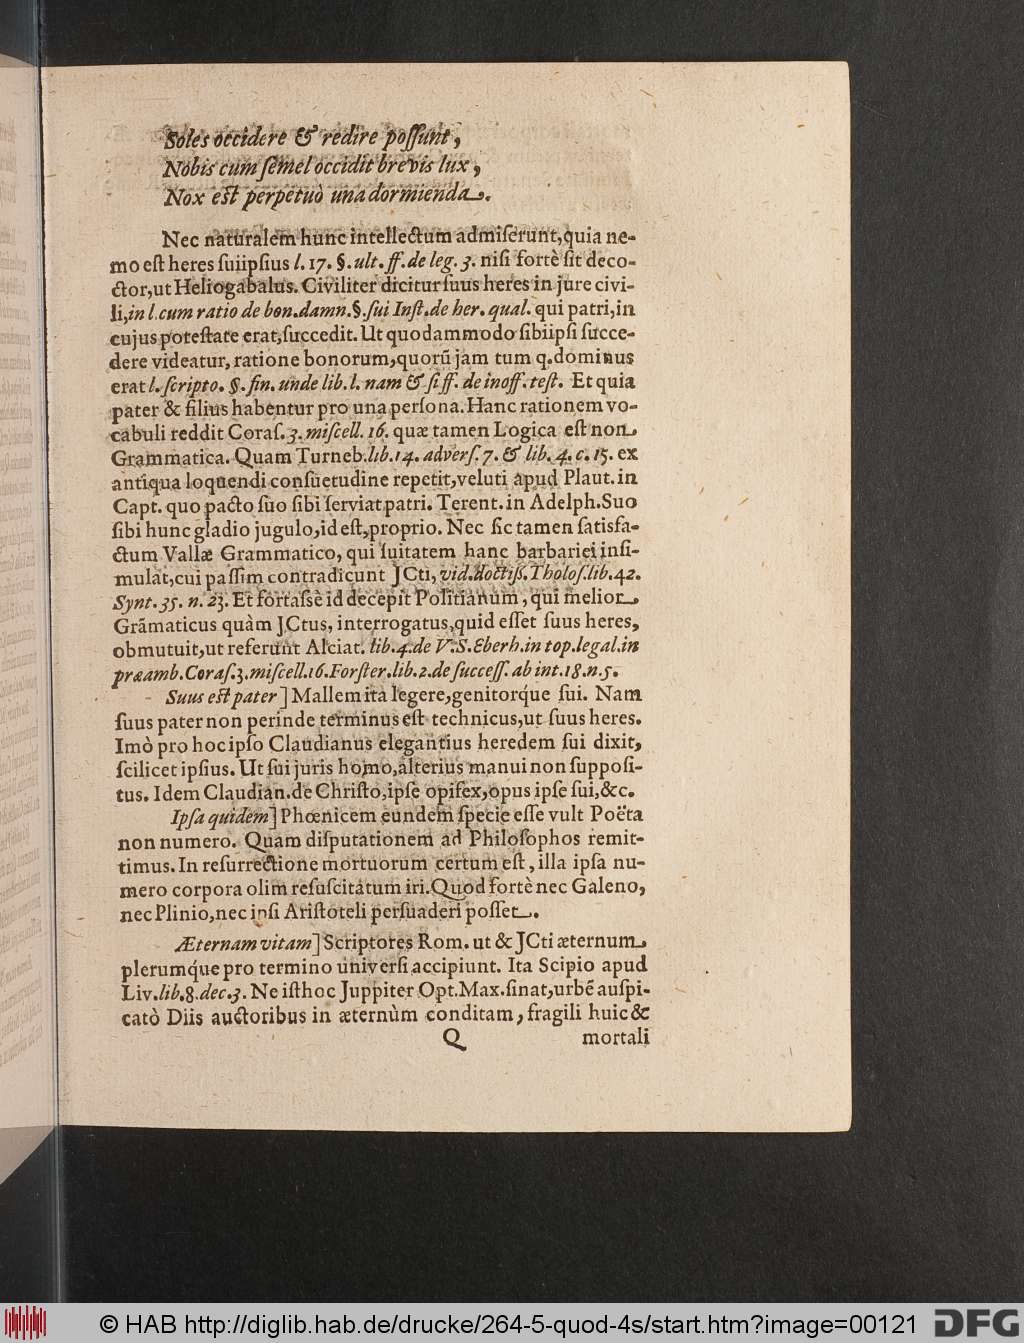 Soles occidere & redire poſſunt,
Nobis cum ſemel occidit brevis lux,
Nox eſt perpetuò una dormienda.
Nec naturalem hunc intellectum admiſerunt, quia ne-
mo eſt heres ſuiipſius l. 17. §. ult. ff. de leg. 3. niſi fortè ſit deco-
ctor, ut Heliogabalus. Civiliter dicitur ſuus heres in jure civi-
li, in l. cum ratio de bon. damn. §. ſui Inſt. de her. qual. qui patri, in
cujus poteſtate erat, ſuccedit. Ut quodammodo ſibiipſi ſucce-
dere videatur, ratione bonorum, quorũ jam tum q. dominus
erat l. ſcripto. §. fin. unde lib. l. nam & ſi ff. de inoff. teſt. Et quia
pater & filius habentur pro una perſona. Hanc rationem vo-
cabuli reddit Coraſ. 3. miſcell. 16. quæ tamen Logica eſt non
Grammatica. Quam Turneb. lib. 14. adverſ. 7. & lib. 4. c. 15. ex
antiqua loquendi conſuetudine repetit, veluti apud Plaut. in
Capt. quo pacto ſuo ſibi ſerviat patri. Terent. in Adelph. Suo
ſibi hunc gladio jugulo, id eſt, proprio. Nec ſic tamen ſatisfa-
ctum Vallæ Grammatico, qui ſuitatem hanc barbariei inſi-
mulat, cui paſſim contradicunt JCti, vid. doctiſſ. Tholoſ. lib. 42.
Synt. 35. n. 23. Et fortaſsè id decepit Politianum, qui melior
Grãmaticus quàm JCtus, interrogatus, quid eſſet ſuus heres,
obmutuit, ut referunt Alciat. lib. 4. de V. S. Eberh. in top. legal. in
præamb. Coraſ. 3. miſcell. 16. Forſter. lib. 2. de ſucceſſ. ab int. 18. n. 5.
Suus eſt pater] Mallem ità legere, genitorq́ue ſui. Nam
ſuus pater non perinde terminus eſt technicus, ut ſuus heres.
Imò pro hoc ipſo Claudianus elegantius heredem ſui dixit,
ſcilicet ipſius. Ut ſui juris homo, alterius manui non ſuppoſi-
tus. Idem Claudian. de Chriſto, ipſe opifex, opus ipſe ſui, &c.
Ipſa quidem] Phœnicem eundem ſpecie eſſe vult Poëta
non numero. Quam diſputationem ad Philoſophos remit-
timus. In reſurrectione mortuorum certum eſt, illa ipſa nu-
mero corpora olim reſuſcitatum iri. Quod fortè nec Galeno,
nec Plinio, nec ipſi Ariſtoteli perſuaderi poſſet.
Æternam vitam] Scriptores Rom. ut & JCti æternum
plerumq́ue pro termino univerſi accipiunt. Ita Scipio apud
Liv. lib. 8. dec. 3. Ne iſthoc Juppiter Opt. Max. ſinat, urbẽ auſpi-
catò Diis auctoribus in æternùm conditam, fragili huic &
Q mortali
© HAB http://diglib.hab.de/drucke/264-5-quod-4s/start.htm?image=00121
DFG